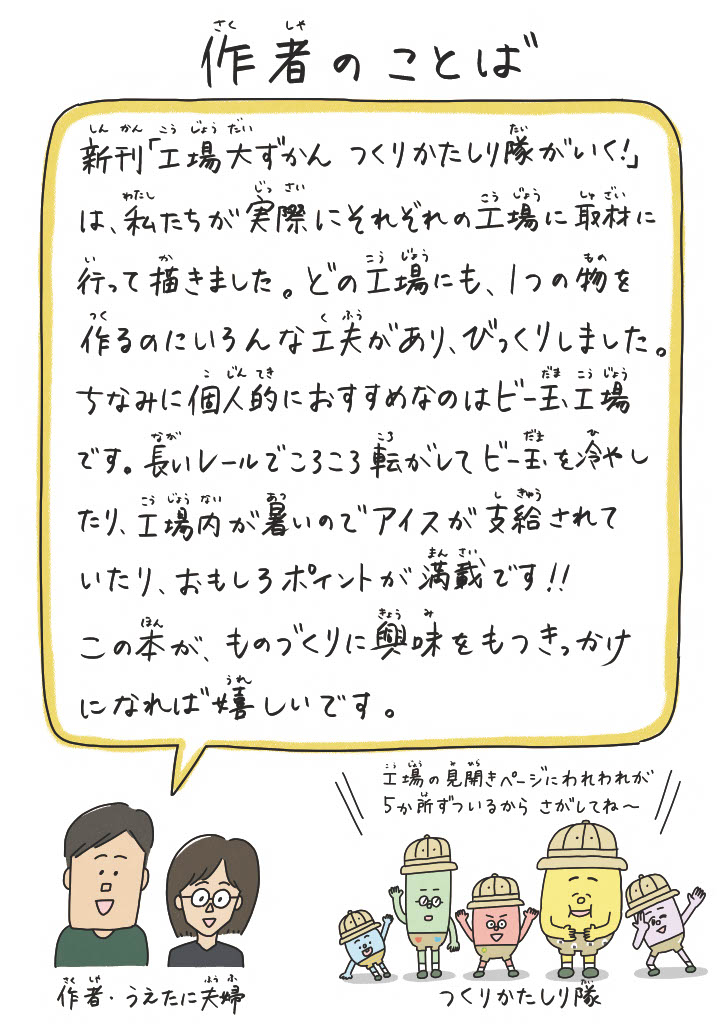 作者のことば
新刊「工場大ずかん つくりかたしり隊がいく!」
は、私たちが実際にそれぞれの工場に取材に
行って描きました。どの工場にも、1つの物を
作るのにいろんな工夫があり、びっくりしました。
ちなみに個人的におすすめなのはビー玉工場
です。長いレールでころころ転がしてビー玉を冷やし
たり、工場内が暑いのでアイスが支給されて
いたり、おもしろポイントが満載です!!
この本が、ものづくりに興味をもつきっかけ
になれば嬉しいです。
工場の見開きページにわれわれが
5か所ずついるから さがしてね〜
作者・うえたに夫婦
つくりかたしり隊